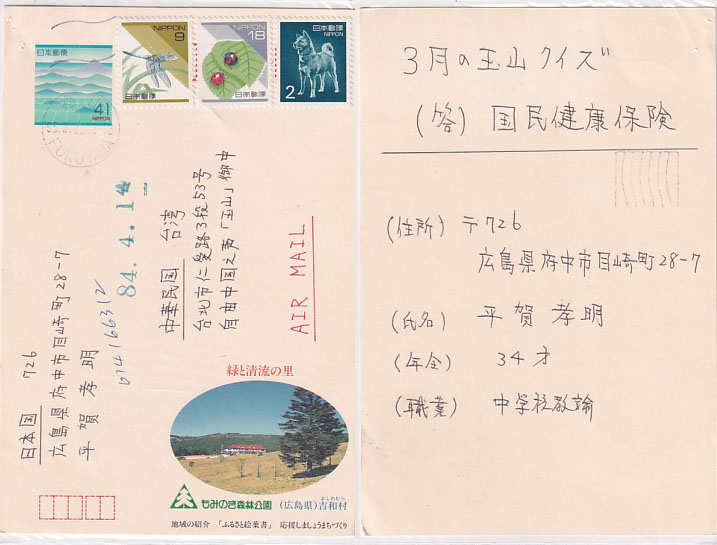 日本郵便
41
NIPPON
NIPPON
9
日本郵便
NIPPON
18
日本郵便
日本郵便
NIPPON
2
FUKUYAMA
84.4.14
中華民国 台湾
台北市仁愛路3段53号
自由中国之声「玉山」御中
AIR MAIL
日本国 726
広島県府中市目崎町28-7
平賀孝明
014166312
緑と清流の里
もみのき森林公園 (広島県)吉和村
よしわむら
地域の紹介 「ふるさと絵葉書」 応援しましょうまちづくり
3月の玉山クイズ
(答) 国民健康保険
(住所) 〒726
広島県府中市目崎町28-7
(氏名) 平賀孝明
(年令) 34才
(職業) 中学校教諭